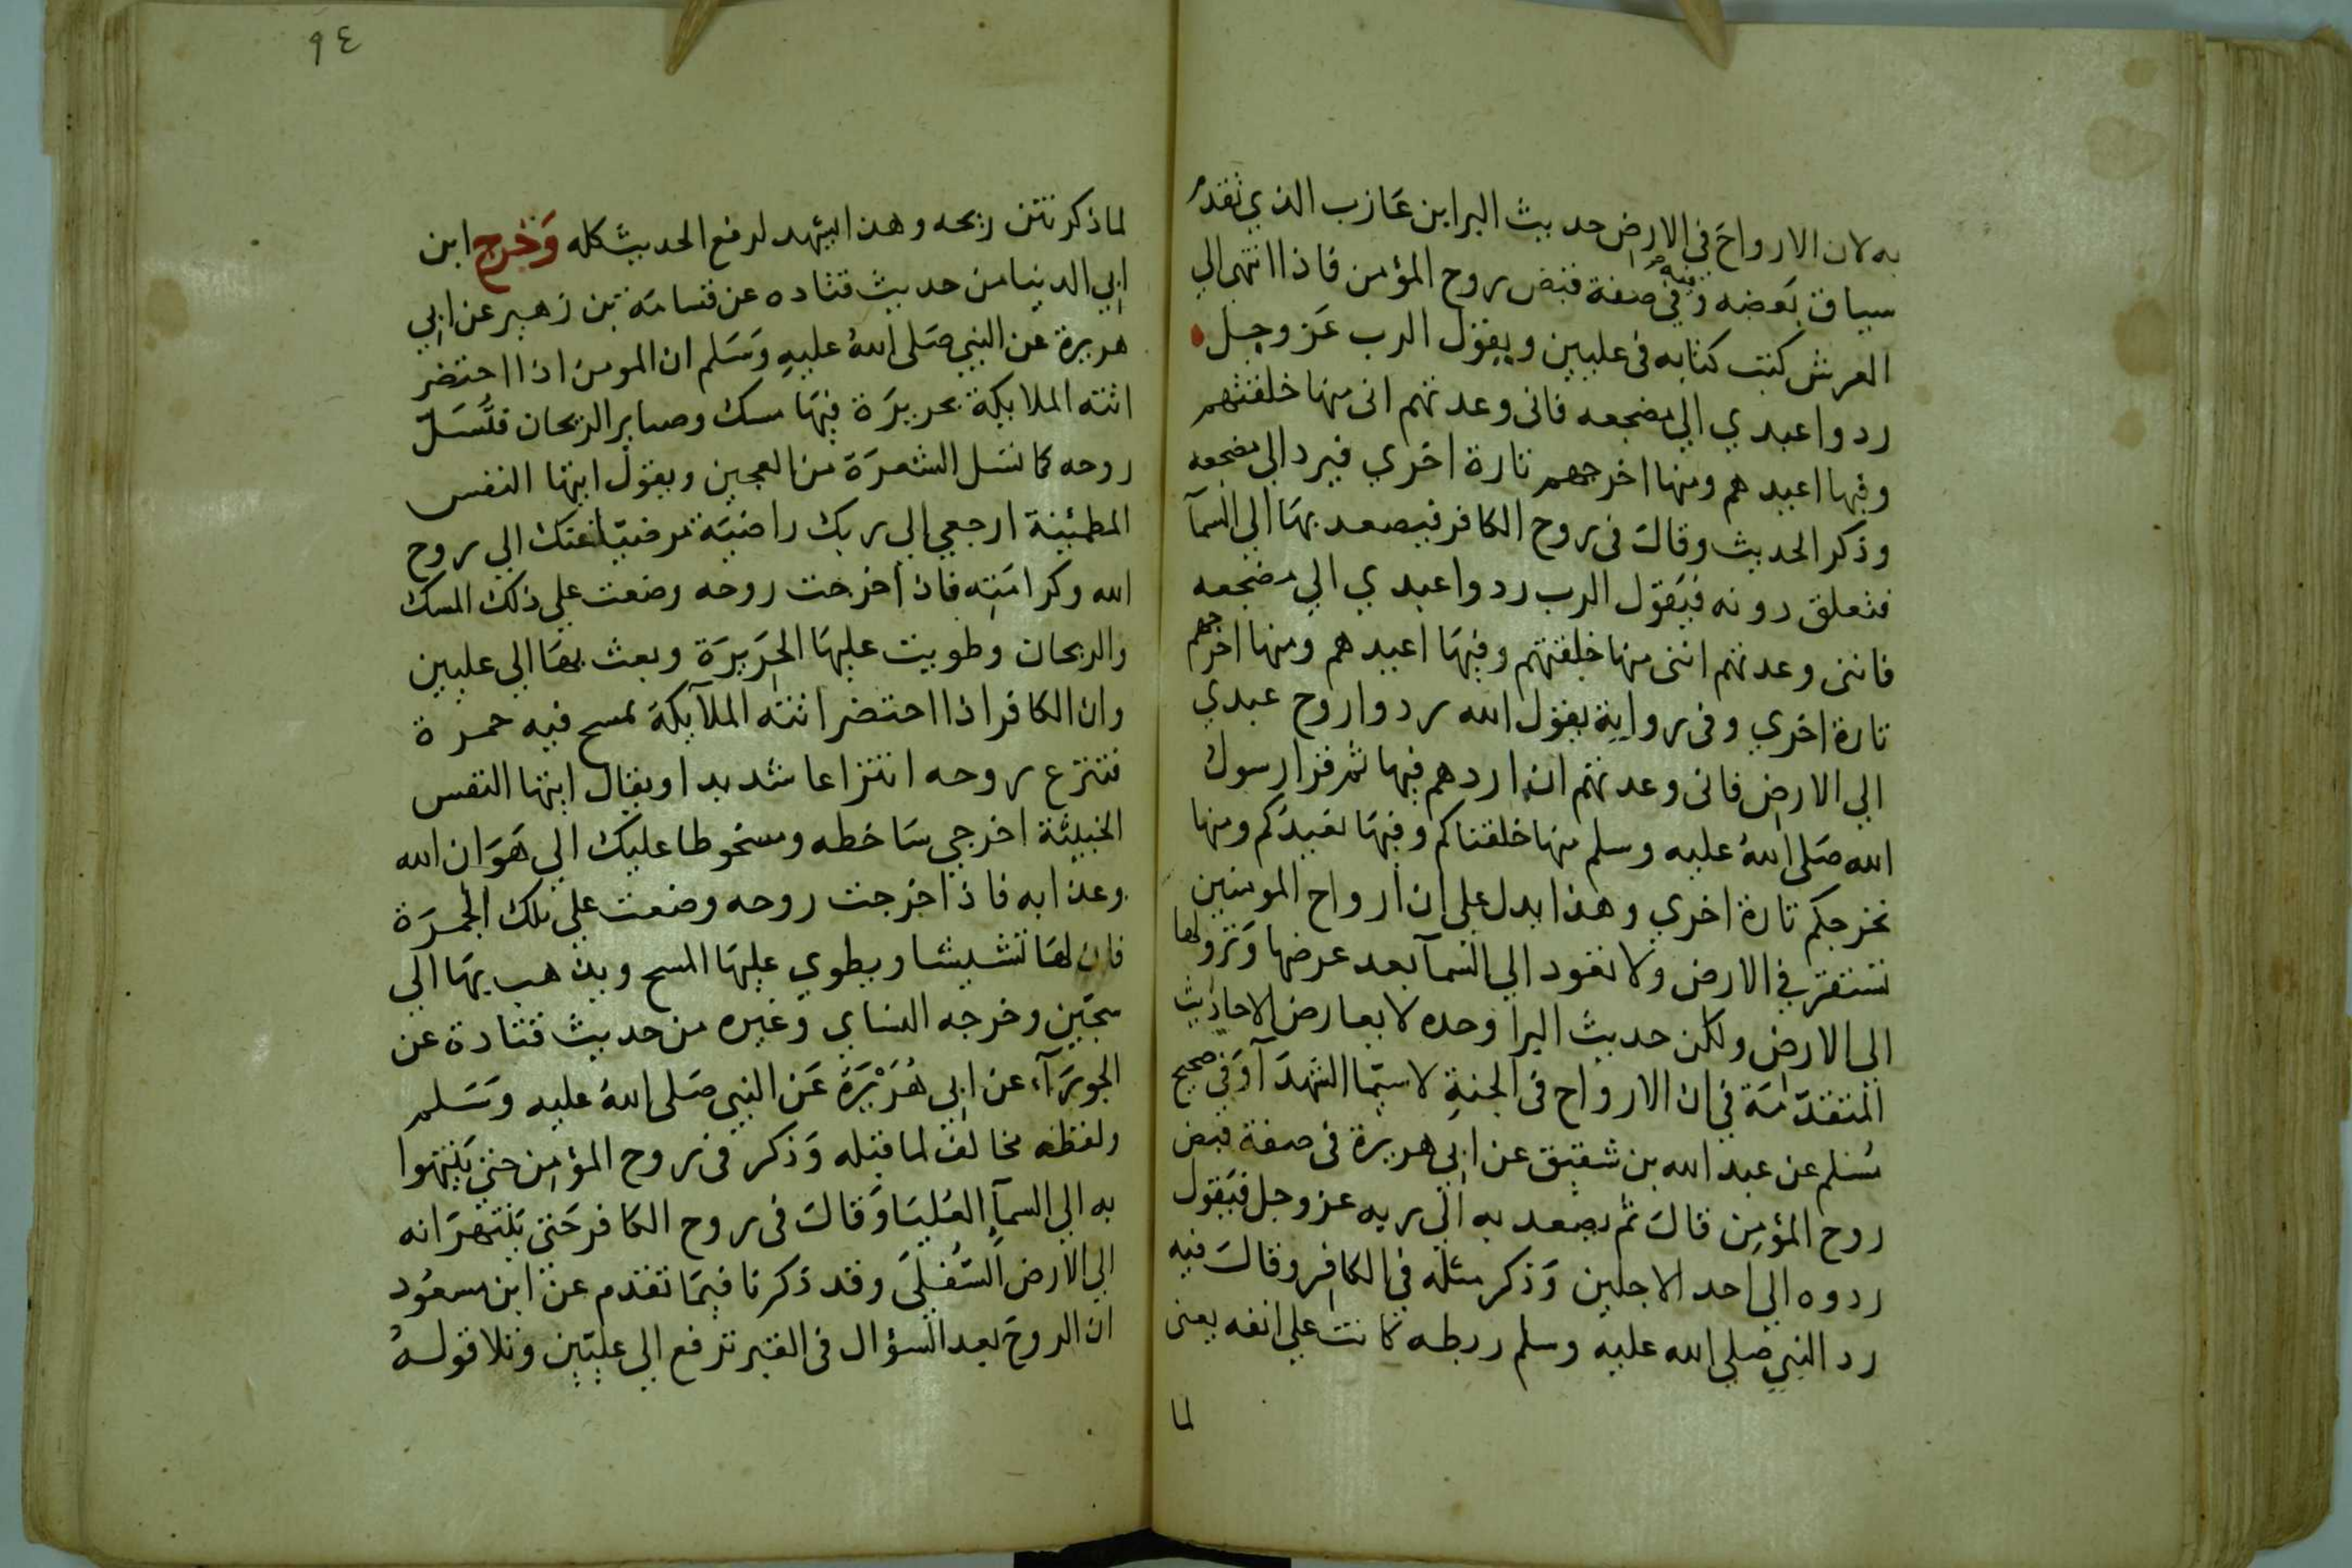 به لان الارواح فى الارض حديث البرا بن عازب الذي تقدم
سياق بعضه وفيه في صفة قبض روح المؤمن فاذا انتهى الي
العرش كتب كتابه فى عليين ويقول الرب عز وجل
ردوا عبدي الي مضجعه فانى وعدتهم انى منها خلقتهم
وفيها اعيدهم ومنها اخرجهم تارة اخري فيرد الي مضجعه
وذكر الحديث وقال فى روح الكافر فيصعد بها الي السمآ
فتغلق دونه فيقول الرب ردوا عبدي الي مضجعه
فاننى وعدتهم اننى منها خلقتهم وفيها اعيدهم ومنها اخرجهم
تارة اخري وفى رواية يقول الله ردوا روح عبدي
الي الارض فانى وعدتهم ان اردهم فيها ثم قرا رسول
الله صَلى اللهُ عليه وسلم منها خلقناكم وفيها نعيدكم ومنها
نخرجكم تارة اخري وهذا يدل علي ان ارواح المومنين
تستقر في الارض ولا تعود الي السمآ بعد عرضها ونزولها
الى الارض ولكن حديث البرا وحده لا يعارض الاحاديث
المتقدّمَة في ان الارواح فى الجنةِ لا سيّما الشهدَآ وَفي صحيح
مُسلم عن عبد الله بن شقيق عن ابي هريرة فى صفة قبض
روح المؤمِن قالَ ثم يصعد به الي ربه عز وجل فيَقول
ردوه الي احد الاجلين وَذكر مثله في الكافِر وقالَ فيه
رد النبي صلي الله عليه وسلم ريطه كانت علي انفه يعنى
لما
٩٤
لما ذكر نتن ريحه وهذا يشهد لرفع الحديث كله وَخَرج ابن
ابي الدنيا من حديث قتاده عن قسامَة بن زهير عن ابي
هريرة عن النبي صَلى اللهُ عليهِ وَسَلم ان المومن اذا احتضر
اتته الملايكة بحريرَة فيهَا مسك وصباير الريحان فتُسَلّ
روحه كما تسَل الشعرَة من العجين ويقول ايتها النفس
المطمئينة ارجعي الي ربك راضيَة مرضيّا عنك الي روح
الله وكرامَتِه فاذ اخرجت روحه وضعت علي ذلك المسك
والريحان وطويت عليهَا الحَريرَة وبعث بهَا الي عليين
وان الكافر اذا احتضر اتته الملآيكة بمسح فيه جمرة
فتنزع روحه انتزاعا شديدا ويقال ايتها النفس
الخبيثة اخرجي سَاخطه ومسخوطا عليك الي هَوَان الله
وعذابه فاذ اخرجت روحه وضعت علي تلك الجمرَة
فان لهَا نشيشا ويطوي عليهَا المسح ويذهب بهَا الي
سجّين وخرجه النساي وغيره من حديث قتادة عن
الجوزَآء عن ابي هُرَيْرَة عَن النبي صَلى اللهُ عليه وَسَلم
ولفظه مخالف لما قبله وَذكر فى روح المؤمِن حتى يَنتهوا
به الي السمآ العُليَا وَقالَ فى روح الكافر حَتى يَنتهوا به
الي الارض السُفلىَ وقد ذكرنا فيمَا تقدم عن ابن مسعُود
ان الروحَ بعد السؤال فى القبر ترفع الي عليّين وتلا قولهُ